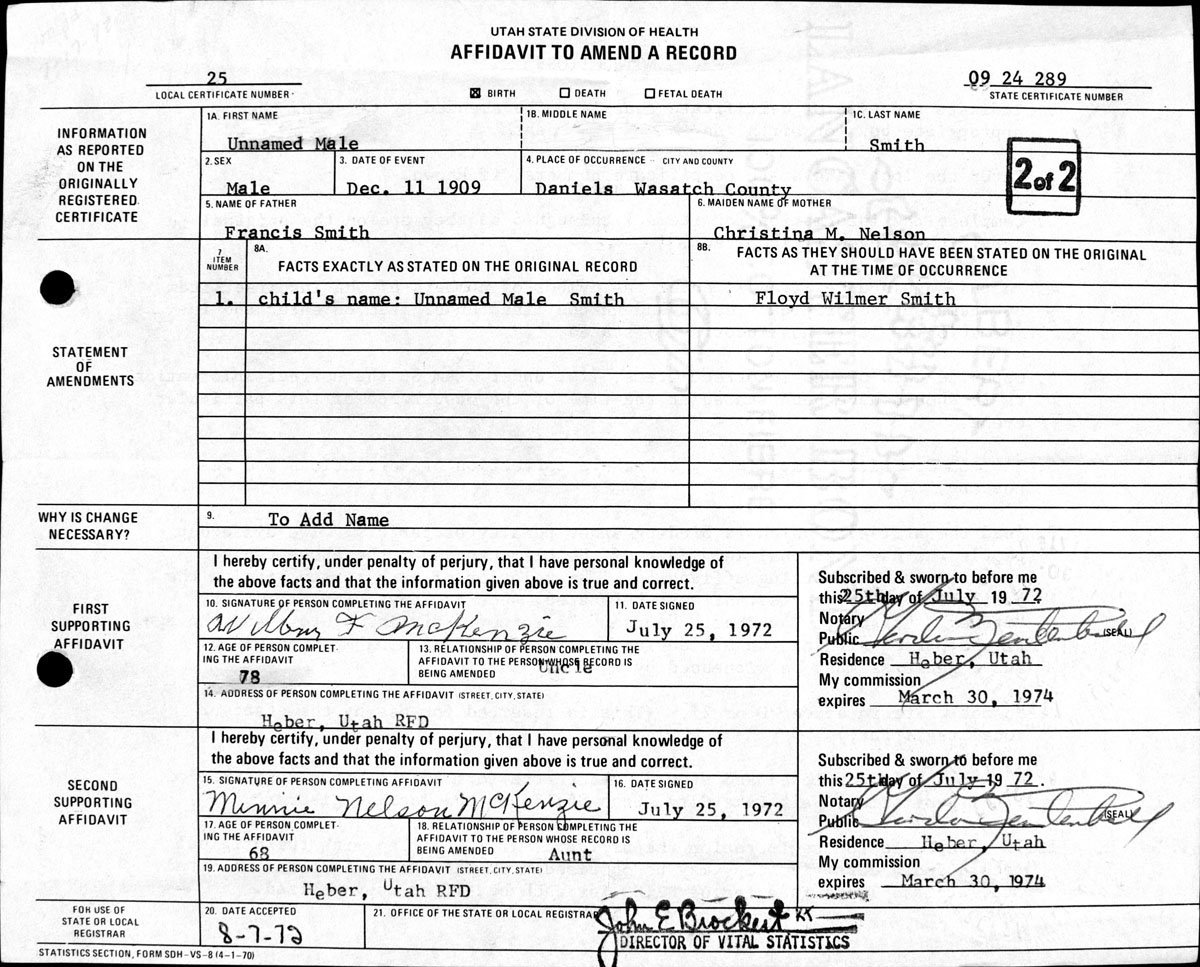 UTAH STATE DIVISION OF HEALTH
AFFIDAVIT TO AMEND A RECORD
25
LOCAL CERTIFICATE NUMBER
☒ BIRTH ☐ DEATH ☐ FETAL DEATH
09 24 289
STATE CERTIFICATE NUMBER
INFORMATION
AS REPORTED
ON THE
ORIGINALLY
REGISTERED
CERTIFICATE
1A. FIRST NAME
Unnamed Male
1B. MIDDLE NAME
1C. LAST NAME
Smith
2 of 2
2. SEX
Male
3. DATE OF EVENT
Dec. 11 1909
4. PLACE OF OCCURRENCE -- CITY AND COUNTY
Daniels Wasatch County
5. NAME OF FATHER
Francis Smith
6. MAIDEN NAME OF MOTHER
Christina M. Nelson
STATEMENT
OF
AMENDMENTS
7
ITEM
NUMBER
8A.
FACTS EXACTLY AS STATED ON THE ORIGINAL RECORD
8B.
FACTS AS THEY SHOULD HAVE BEEN STATED ON THE ORIGINAL
AT THE TIME OF OCCURRENCE
1. child's name: Unnamed Male Smith
Floyd Wilmer Smith
WHY IS CHANGE
NECESSARY?
9. To Add Name
FIRST
SUPPORTING
AFFIDAVIT
I hereby certify, under penalty of perjury, that I have personal knowledge of
the above facts and that the information given above is true and correct.
10. SIGNATURE OF PERSON COMPLETING THE AFFIDAVIT
F McKenzie
11. DATE SIGNED
July 25, 1972
12. AGE OF PERSON COMPLET-
ING THE AFFIDAVIT
78
13. RELATIONSHIP OF PERSON COMPLETING THE
AFFIDAVIT TO THE PERSON WHOSE RECORD IS
BEING AMENDED Uncle
14. ADDRESS OF PERSON COMPLETING THE AFFIDAVIT (STREET, CITY, STATE)
Heber, Utah RFD
Subscribed & sworn to before me
this 25th day of July 19 72.
Notary
Public (SEAL)
Residence Heber, Utah
My commission
expires March 30, 1974
SECOND
SUPPORTING
AFFIDAVIT
I hereby certify, under penalty of perjury, that I have personal knowledge of
the above facts and that the information given above is true and correct.
15. SIGNATURE OF PERSON COMPLETING AFFIDAVIT
Minnie Nelson McKenzie
16. DATE SIGNED
July 25, 1972
17. AGE OF PERSON COMPLET-
ING THE AFFIDAVIT
68
18. RELATIONSHIP OF PERSON COMPLETING THE
AFFIDAVIT TO THE PERSON WHOSE RECORD IS
BEING AMENDED Aunt
19. ADDRESS OF PERSON COMPLETING THE AFFIDAVIT (STREET, CITY, STATE)
Heber, Utah RFD
Subscribed & sworn to before me
this 25th day of July 19 72.
Notary
Public (SEAL)
Residence Heber, Utah
My commission
expires March 30, 1974
FOR USE OF
STATE OR LOCAL
REGISTRAR
20. DATE ACCEPTED
8-7-72
21. OFFICE OF THE STATE OR LOCAL REGISTRAR
John E Brockert
DIRECTOR OF VITAL STATISTICS
STATISTICS SECTION, FORM SDH-VS-8 (4-1-70)